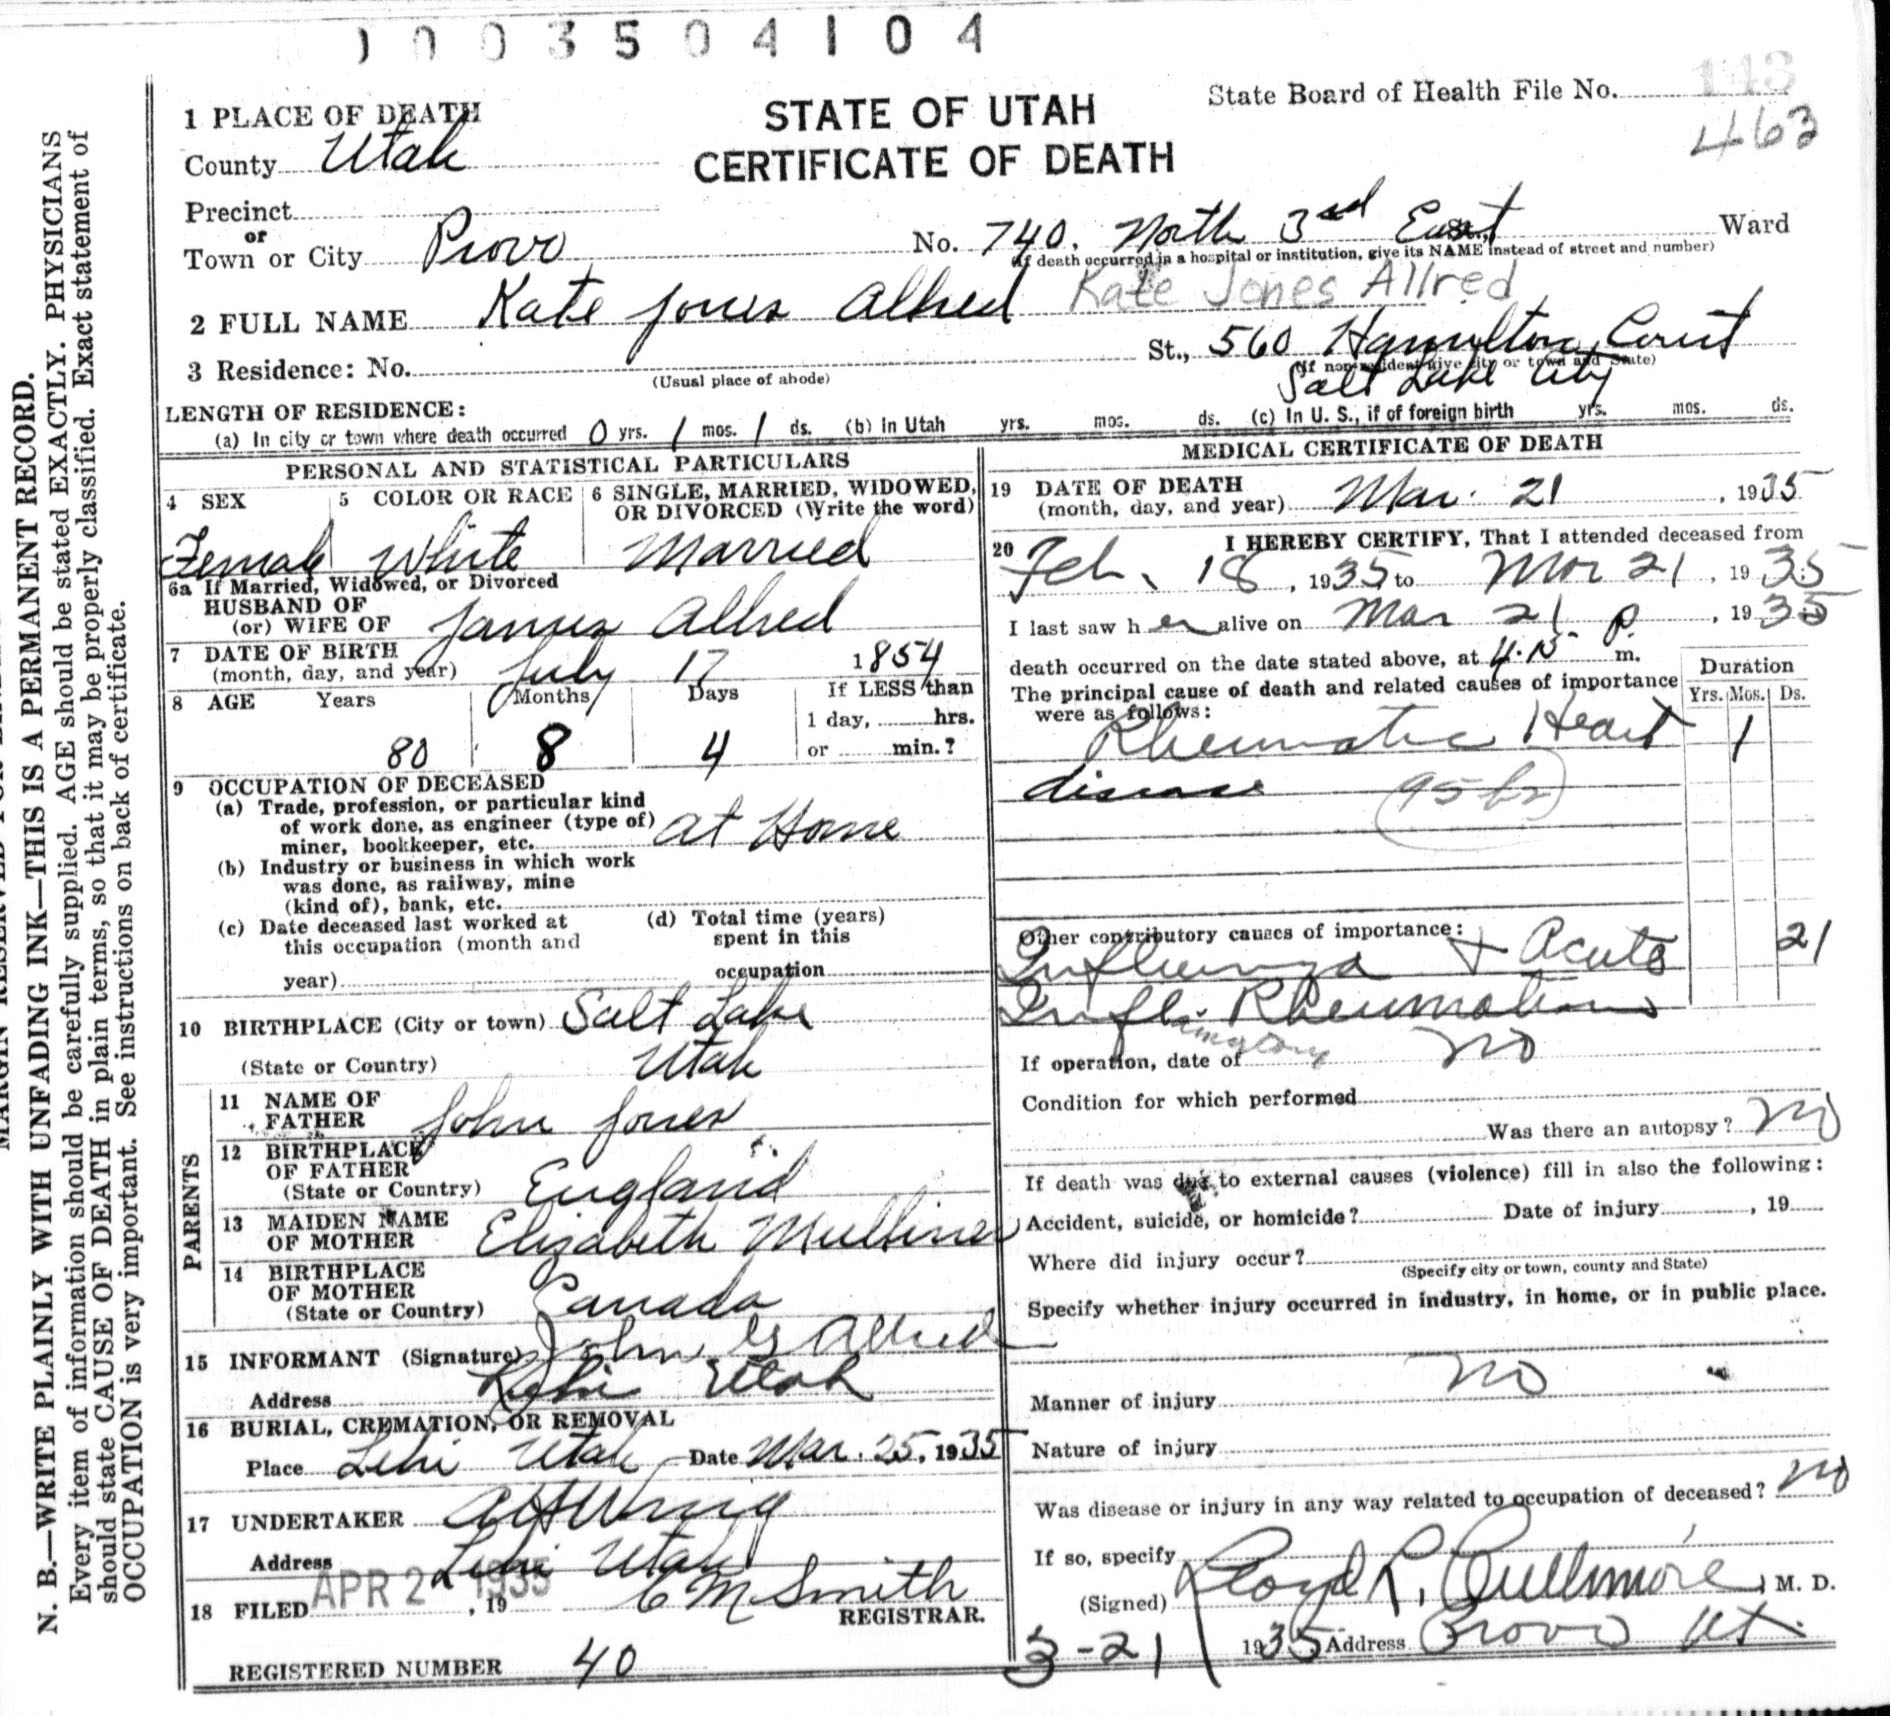 1003504104
State Board of Health File No. 143
463
STATE OF UTAH
CERTIFICATE OF DEATH
1 PLACE OF DEATH
County Utah
Precinct
or
Town or City Provo No. 740. North 3rd East St., Ward
(If death occurred in a hospital or institution, give its NAME instead of street and number)
2 FULL NAME Kate Jones Allred Kate Jones Allred
3 Residence: No. St., 560 Hamilton Court
(Usual place of abode) (If non-resident give city or town and State)
Salt Lake City
LENGTH OF RESIDENCE:
(a) In city or town where death occurred 0 yrs. 1 mos. 1 ds. (b) in Utah yrs. mos. ds. (c) In U. S., if of foreign birth yrs. mos. ds.
PERSONAL AND STATISTICAL PARTICULARS
4 SEX
Female
5 COLOR OR RACE
White
6 SINGLE, MARRIED, WIDOWED,
OR DIVORCED (Write the word)
Married
6a If Married, Widowed, or Divorced
HUSBAND OF
(or) WIFE OF James Allred
7 DATE OF BIRTH
(month, day, and year) July 17 1854
8 AGE Years Months Days If LESS than
1 day, hrs.
80 8 4 or min.?
9 OCCUPATION OF DECEASED
(a) Trade, profession, or particular kind
of work done, as engineer (type of)
miner, bookkeeper, etc. at Home
(b) Industry or business in which work
was done, as railway, mine
(kind of), bank, etc.
(c) Date deceased last worked at
this occupation (month and
year)
(d) Total time (years)
spent in this
occupation
10 BIRTHPLACE (City or town) Salt Lake
(State or Country) Utah
PARENTS
11 NAME OF
FATHER John Jones
12 BIRTHPLACE
OF FATHER
(State or Country) England
13 MAIDEN NAME
OF MOTHER Elizabeth Mulliner
14 BIRTHPLACE
OF MOTHER
(State or Country) Canada
15 INFORMANT (Signature) John G Allred
Address Lehi Utah
16 BURIAL, CREMATION, OR REMOVAL
Place Lehi Utah Date Mar. 25, 1935
17 UNDERTAKER
Address Lehi Utah
18 FILED APR 2 1935, 19 C M Smith
REGISTRAR.
REGISTERED NUMBER 40
MEDICAL CERTIFICATE OF DEATH
19 DATE OF DEATH
(month, day, and year) Mar. 21, 1935
20 I HEREBY CERTIFY, That I attended deceased from
Feb. 18, 1935 to Mar 21, 1935
I last saw h er alive on Mar 21, 1935
death occurred on the date stated above, at 4.15 p. m.
The principal cause of death and related causes of importance
were as follows:
Duration
Yrs. Mos. Ds.
Rheumatic Heart 1
disease
Other contributory causes of importance:
Influenza + Acute 21
Infla. Rheumatism
If operation, date of no
Condition for which performed
Was there an autopsy? no
If death was due to external causes (violence) fill in also the following:
Accident, suicide, or homicide? Date of injury , 19
Where did injury occur?
(Specify city or town, county and State)
Specify whether injury occurred in industry, in home, or in public place.
no
Manner of injury
Nature of injury
Was disease or injury in any way related to occupation of deceased? no
If so, specify
(Signed) Lloyd L. Cullimore, M. D.
3-21 1935 Address Provo Ut.
N. B.—WRITE PLAINLY WITH UNFADING INK—THIS IS A PERMANENT RECORD.
Every item of information should be carefully supplied. AGE should be stated EXACTLY. PHYSICIANS
should state CAUSE OF DEATH in plain terms, so that it may be properly classified. Exact statement of
OCCUPATION is very important. See instructions on back of certificate.